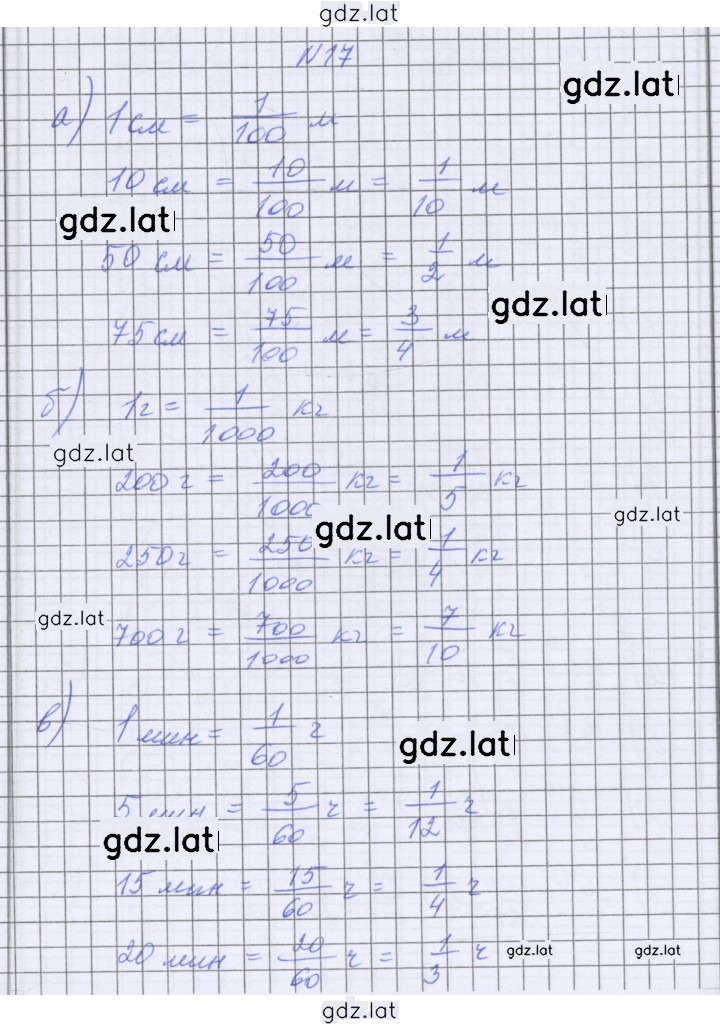 gdz.lat
N17
gdz.lat
а) 1 см = 1/100 м
10 см = 10/100 м = 1/10 м
gdz.lat
50 см = 50/100 м = 1/2 м
gdz.lat
75 см = 75/100 м = 3/4 м
б) 1 г = 1/1000 кг
gdz.lat
200 г = 200/1000 кг = 1/5 кг
gdz.lat
gdz.lat
250 г = 250/1000 кг = 1/4 кг
gdz.lat
700 г = 700/1000 кг = 7/10 кг
в) 1 мин = 1/60 ч
gdz.lat
5 мин = 5/60 ч = 1/12 ч
gdz.lat
15 мин = 15/60 ч = 1/4 ч
20 мин = 20/60 ч = 1/3 ч
gdz.lat
gdz.lat
gdz.lat